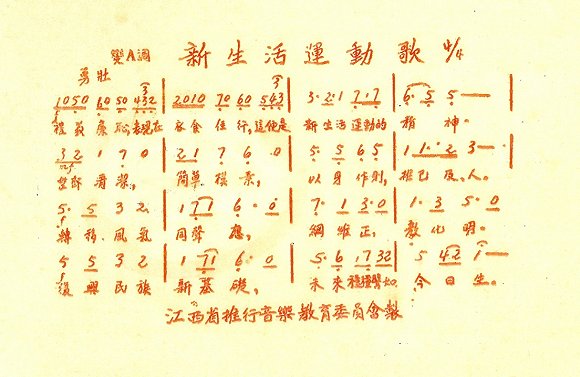 變A調 新生活運動歌 4/4
勇壯
1050 60 50 432 | 2010 70 60 543 | 3·21 7·7 | 6·5 5—
禮義廉恥,表現在 衣食住行,這便是 新生活運動的 精神。
32 1 7 0 | 21 7 6 0 | 5·5 65 | 11·2 3—
整齊清潔, 簡單樸素, 以身作則, 推己及人。
5·5 3 2 | 171 6·0 | 7·1 3·0 | 1·3 5·0
轉移風氣 同聲應, 綱維正, 教化明。
5 5 3 2 | 1·71 6·0 | 5·6 1732 | 5 42 1—
復興民族 新基礎, 未來種種譬如 今日生。
江西省推行音樂教育委員會製